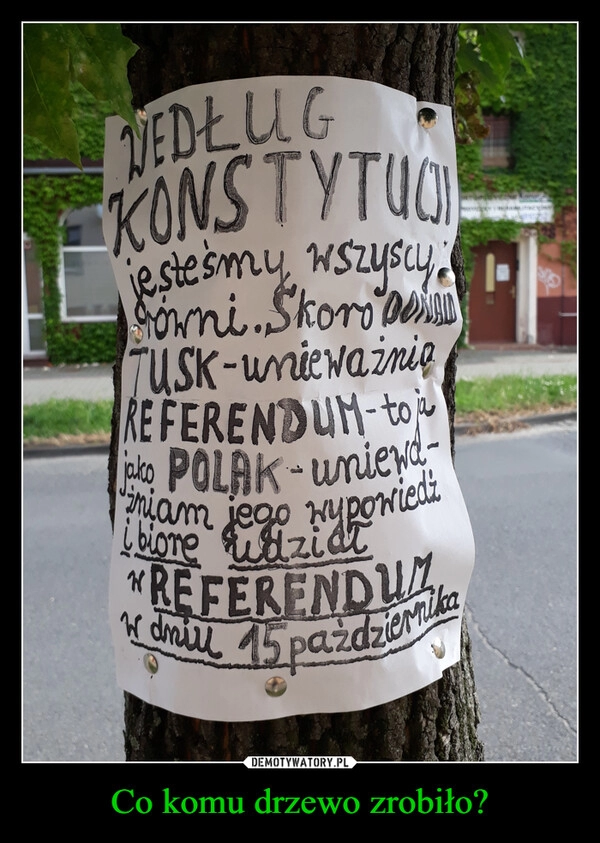 WEDŁUG
KONSTYTUCJI
jesteśmy wszyscy
równi. Skoro DONALD
TUSK-unieważnia
REFERENDUM-to ja
jako POLAK-uniewa-
żniam jego wypowiedź
i biorę udział
w REFERENDUM
w dniu 15 października
DEMOTYWATORY.PL
Co komu drzewo zrobiło?